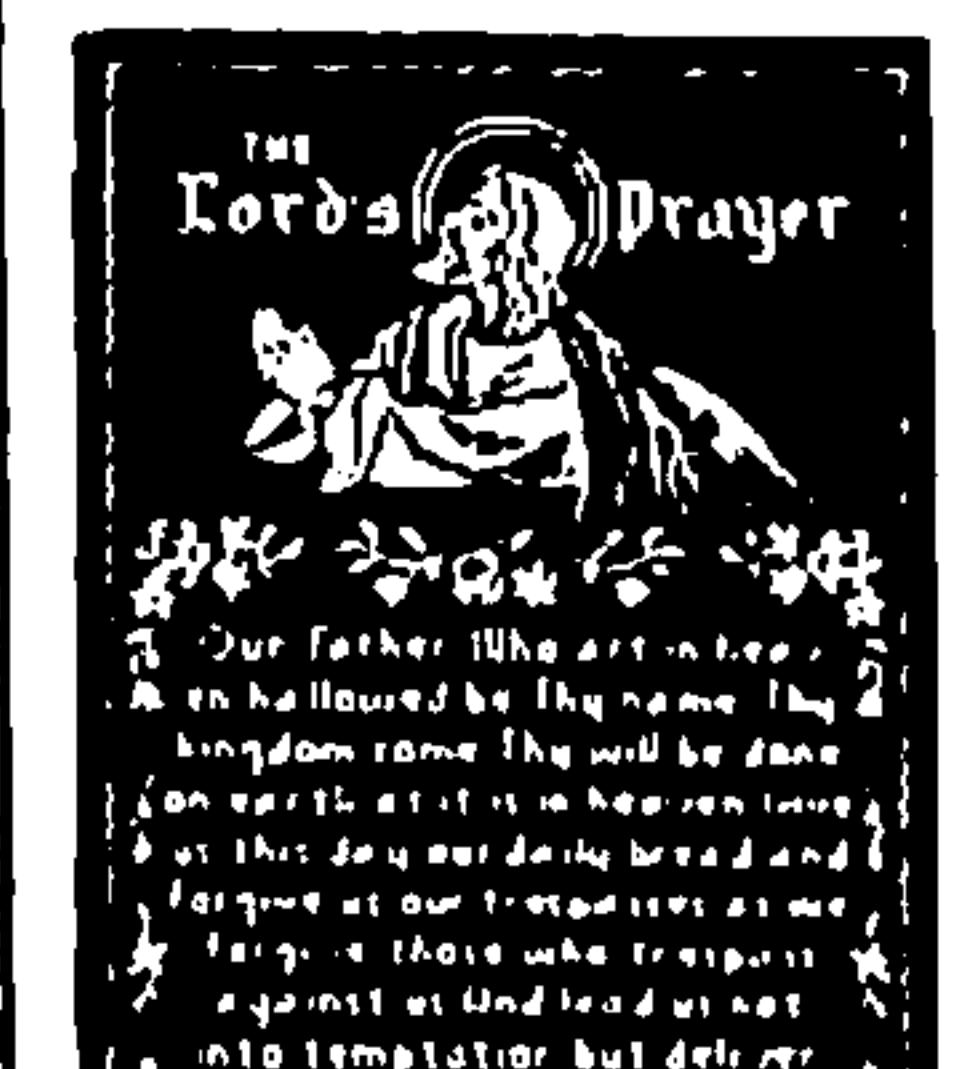 THE
Lord's Prayer
Our Father Who art in heav
en hallowed be Thy name Thy
kingdom come Thy will be done
on earth as it is in heaven
us this day our daily bread and
forgive us our trespasses as we
forgive those who trespass
against us And lead us not
into temptation but deliver